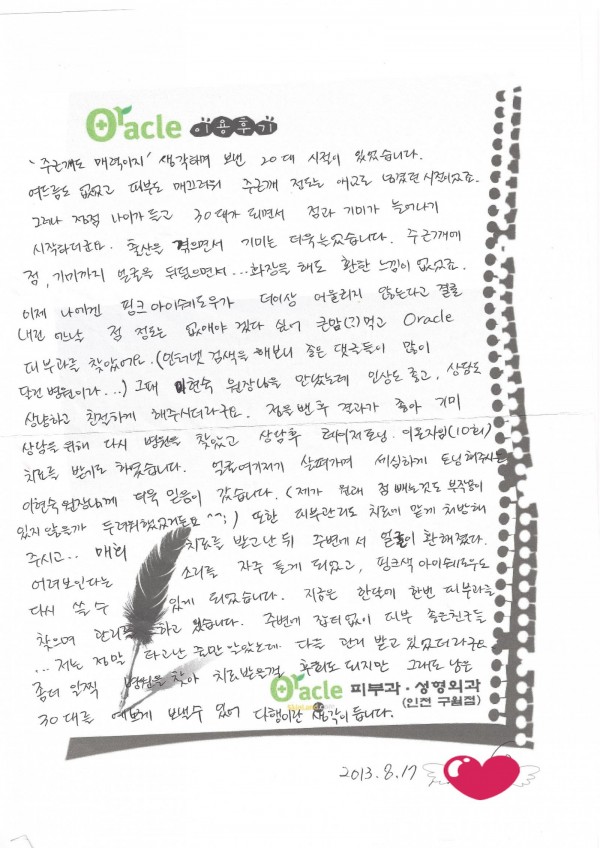 Oracle 이용후기
'주근깨도 매력이지' 생각하며 보낸 20대 시절이 있었습니다.
여드름도 없었고 피부도 매끄러워 주근깨 정도는 애교로 넘겼던 시절이었죠.
그러나 점점 나이가 들고 30대가 되면서 점과 기미가 늘어나기
시작하더군요. 출산을 겪으면서 기미는 더욱 늘었습니다. 주근깨에
점, 기미까지 얼굴을 뒤덮으면서...화장을 해도 환한 느낌이 없었죠.
이제 나에겐 핑크 아이쉐도우가 더이상 어울리지 않는다고 결론
내린 어느날 점 정도는 없애야 겠다 싶어 큰맘(?)먹고 Oracle
피부과를 찾았어요. (인터넷 검색을 해보니 좋은 댓글들이 많이
달린 병원이라...) 그때 이현숙 원장님을 만났는데 인상도 좋고, 상담도
상냥하고 친절하게 해주시더라구요. 점을 뺀 후 결과가 좋아 기미
상담을 위해 다시 병원을 찾았고 상담후 레이저토닝, 이온자임(10회)
치료를 받기로 하였습니다. 얼굴 여기저기 살펴가며 세심하게 토닝해주시는
이현숙 원장님께 더욱 믿음이 갔습니다. (제가 원래 점 빼는것도 부작용이
있지 않을까 두려워했었거든요 ^^;) 또한 피부관리도 치료에 맞게 처방해
주시고.. 매회 치료를 받고난 뒤 주변에서 얼굴이 환해졌다.
어려보인다는 소리를 자주 듣게 되었고, 핑크색 아이쉐도우도
다시 쓸 수 있게 되었습니다. 지금은 한달에 한번 피부과를
찾으며 관리를 하고 있습니다. 주변에 잡티없이 피부 좋은친구들
... 저는 정말 타고난 줄만 알았는데 다들 관리 받고 있었더라구요.
좀더 일찍 병원을 찾아 치료받을걸 후회도 되지만 그래도 남은
30대를 예쁘게 보낼수 있어 다행이란 생각이 듭니다.
Oracle 피부과·성형외과
(인천 구월점)
2013.8.17